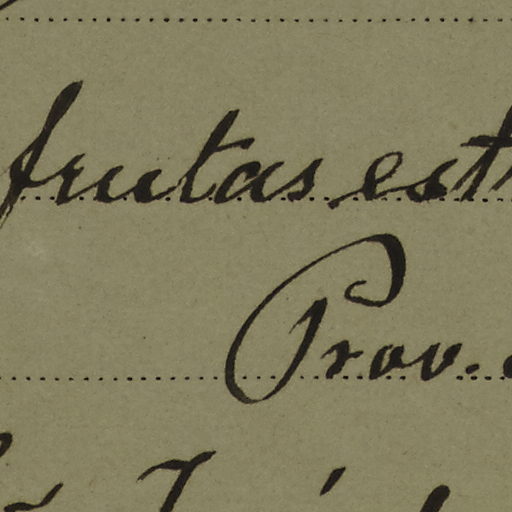 frutas est
Prov.